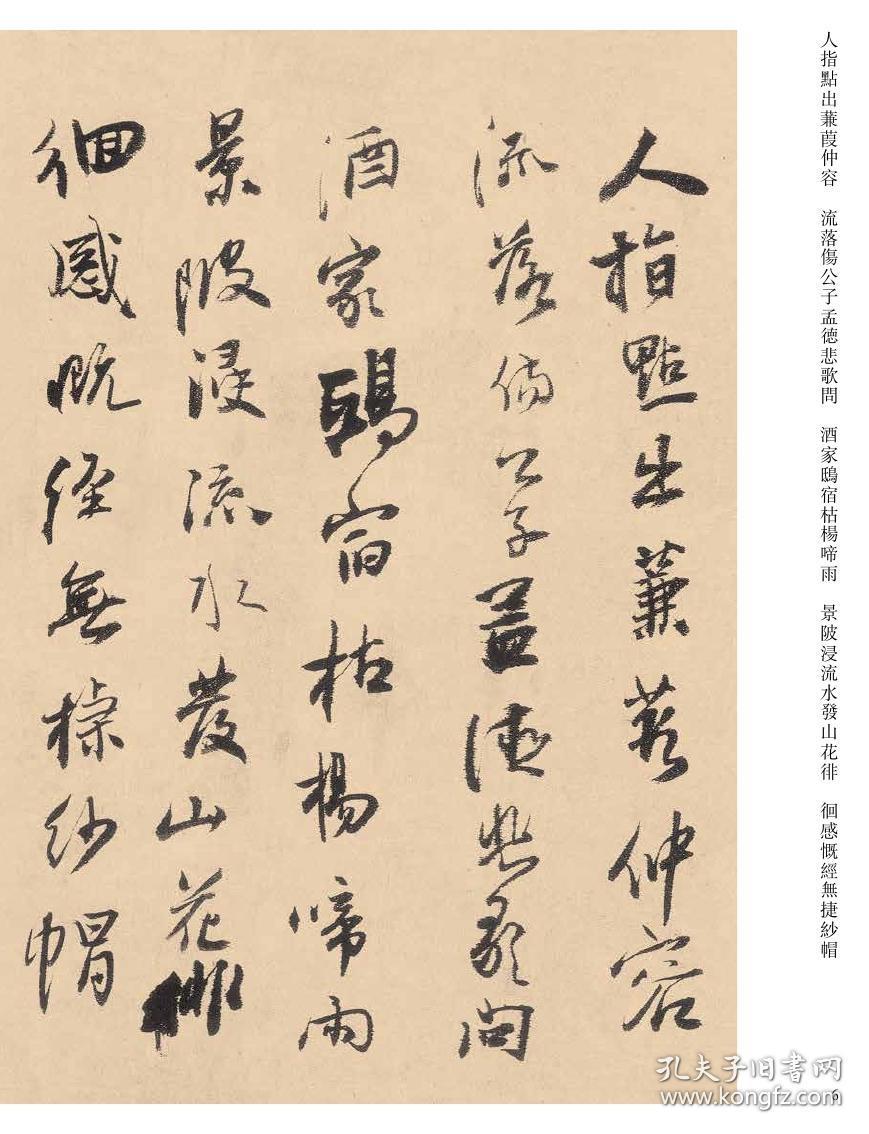 人指點出蒹葭仲容
流落傷公子孟德悲歌問
酒家鴟宿枯楊啼雨
景陂浸流水發山花徘
徊感慨經無捷紗帽
人指點出蒹葭仲容 流落傷公子孟德悲歌問 酒家鴟宿枯楊啼雨 景陂浸流水發山花徘 徊感慨經無捷紗帽
孔夫子旧书网
www.kongfz.com
6